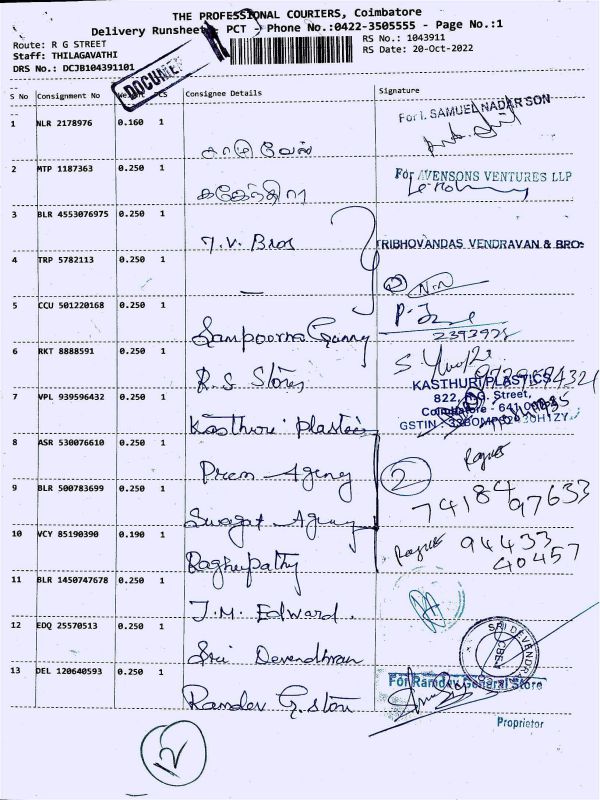 THE PROFESSIONAL COURIERS, Coimbatore
Delivery Runsheet, PCT - Phone No.:0422-3505555 - Page No.:1
Route: R G STREET
RS No.: 1043911
Staff: THILAGAVATHI
RS Date: 20-Oct-2022
DRS No.: DCJB104391101
DOCUMENT
S No Consignment No Weight PCS Consignee Details Signature
1 NLR 2178976 0.160 1
For I. SAMUEL NADAR SON
2 MTP 1187363 0.250 1
For AVENSONS VENTURES LLP
3 BLR 4553076975 0.250 1 T.V. Bros TRIBHOVANDAS VENDRAVAN & BROS
4 TRP 5782113 0.250 1 —
5 CCU 501220168 0.250 1 Sampoorna Granny
6 RKT 8888591 0.250 1 R.S. Stores
7 VPL 939596432 0.250 1 Kasthuri Plastics
KASTHURI PLASTICS
822, R.G. Street,
Coimbatore - 641
GSTIN
8 ASR 530076610 0.250 1 Prem Agency
2
9 BLR 500783699 0.250 1 Swagat Agency
74184 97633
10 VCY 85190390 0.190 1 Raghupathy
94433
40457
11 BLR 1450747678 0.250 1 J.M. Edward.
12 EDQ 25570513 0.250 1 Sri Devendhran
SRI DEVENDRA
CBE-1
13 DEL 120640593 0.250 1 Ramdev G. Store
For Ramdev General Store
Proprietor
2